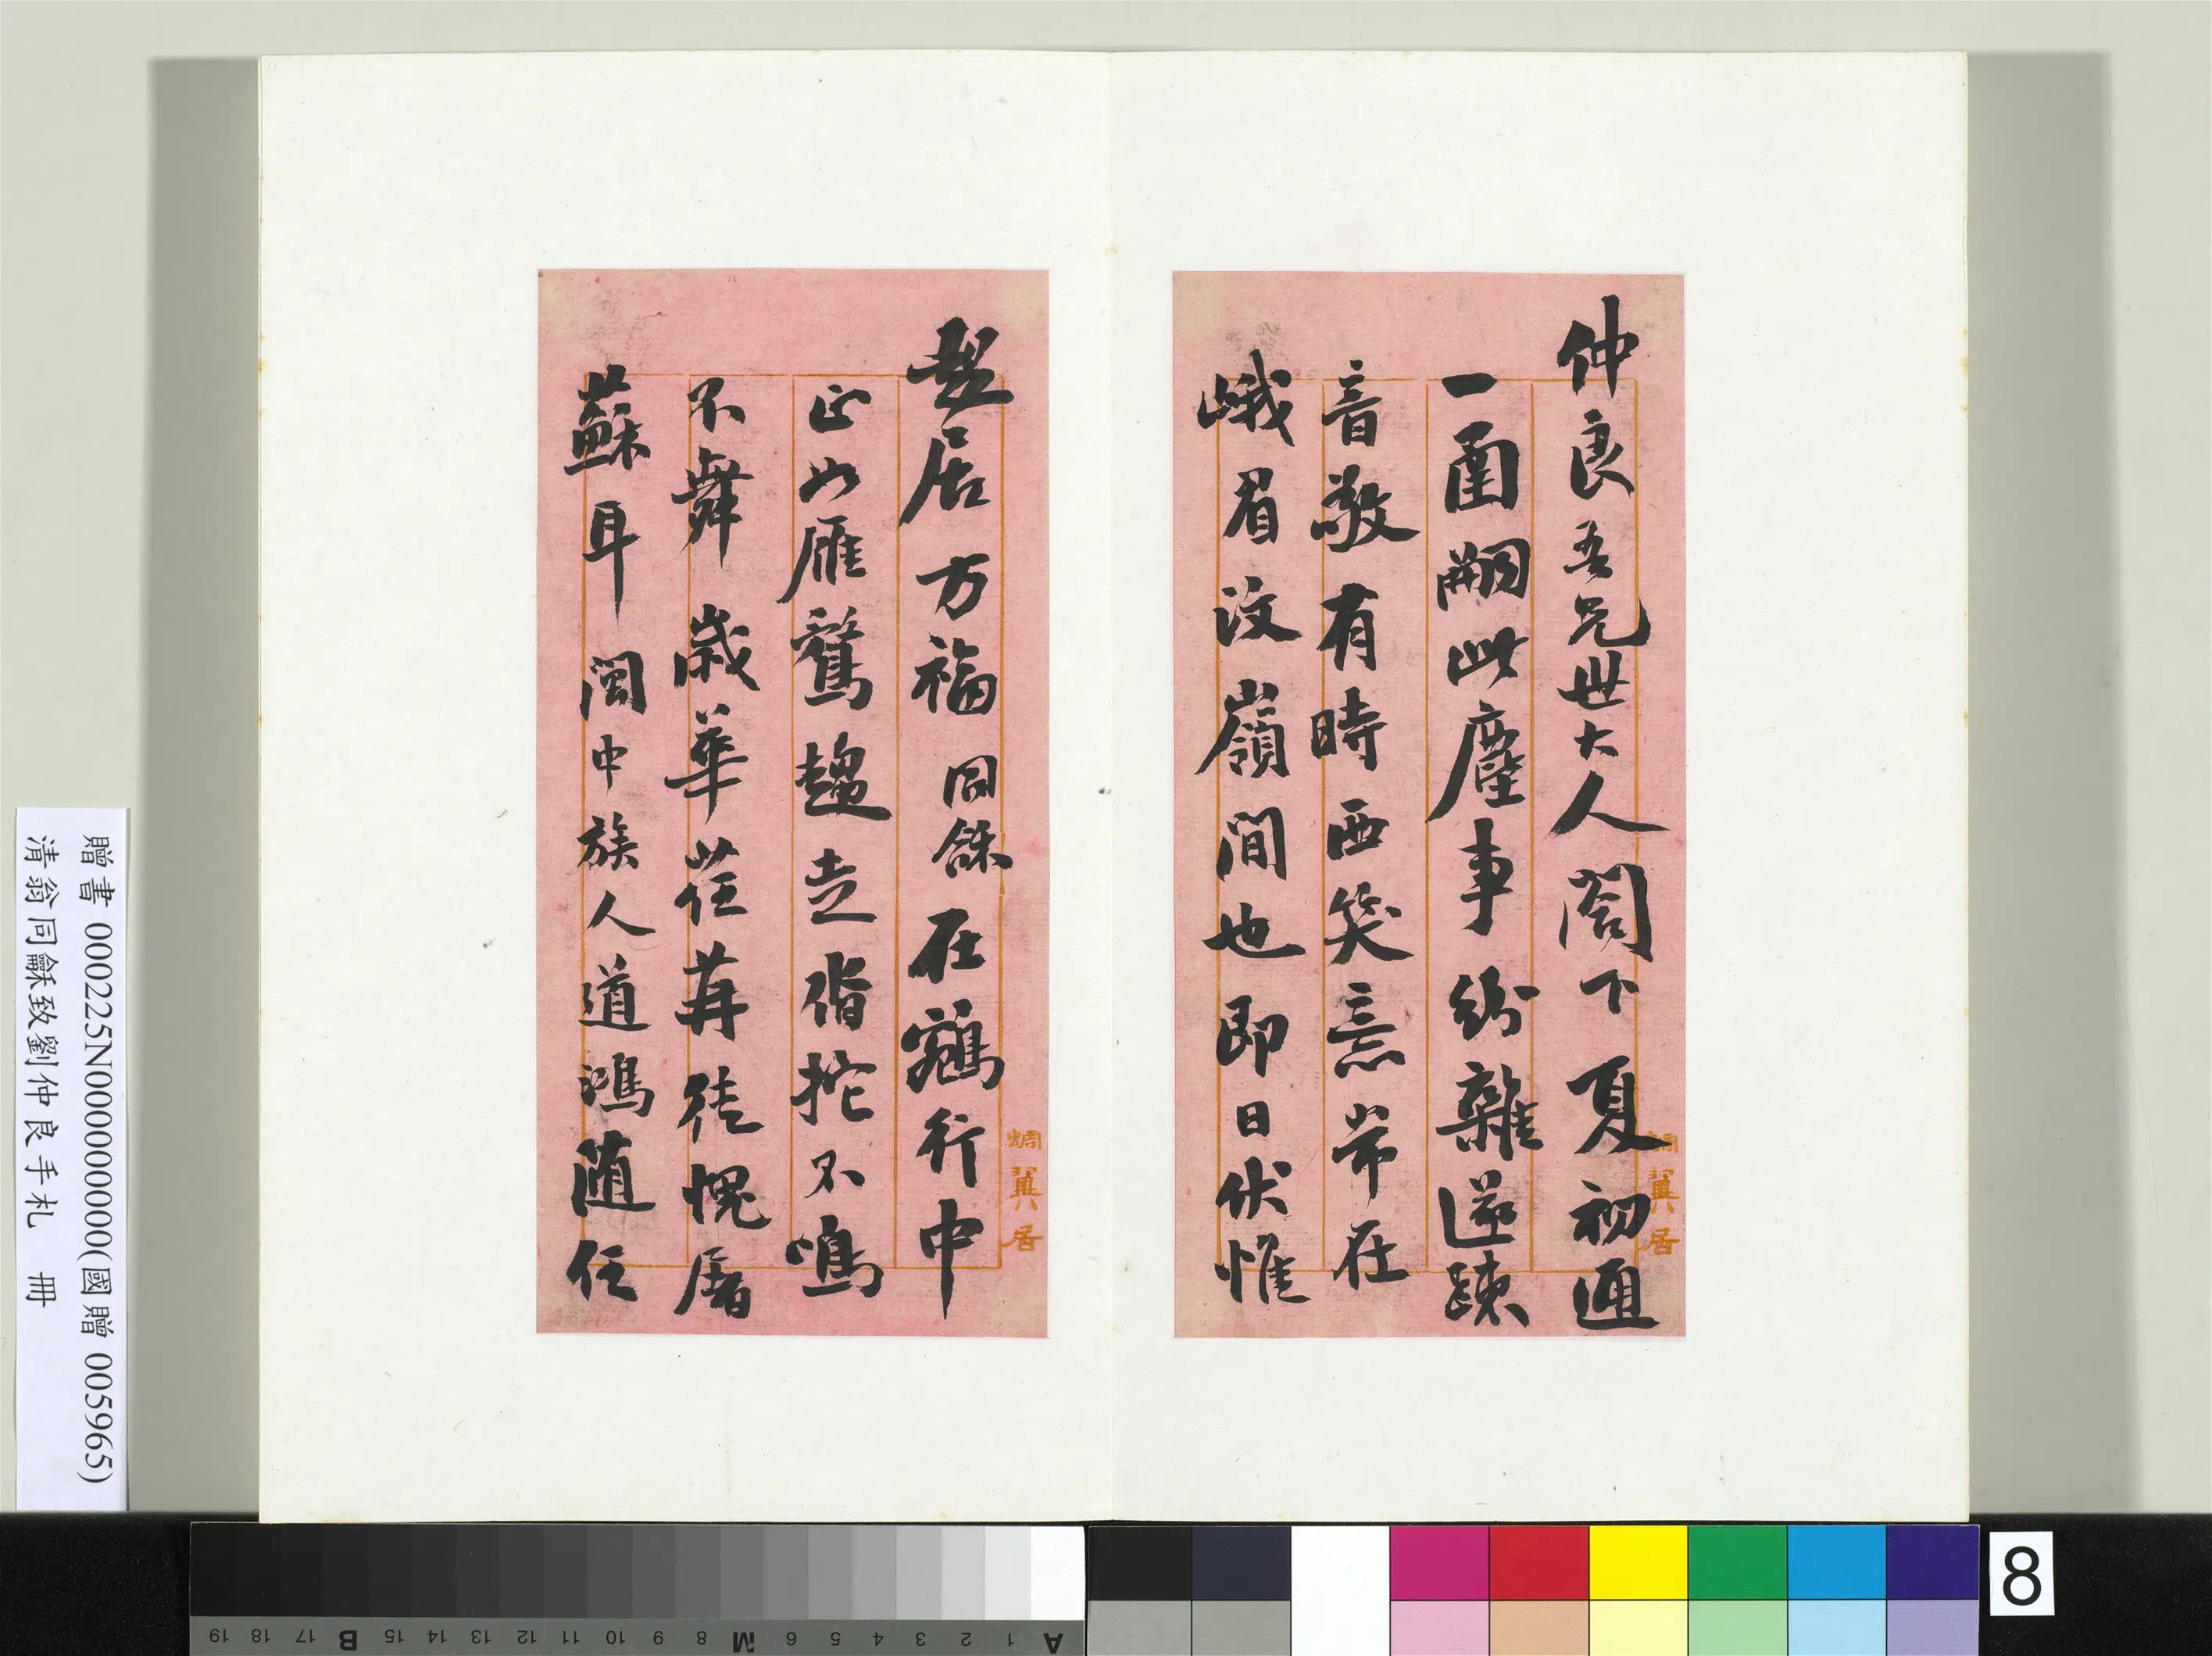 仲良吾兄世大人閣下夏初通
一函嗣此塵事紛雜遂踈
音敬有時西笑意常在
峨眉汶嶺間也即日伏惟
蜩翼居
起居万福同龢在鵷行中
正如雁鶩趨走偕拕不鳴
不舞歲華荏苒徒愧屠
蘇耳閩中族人道鴻随任
蜩翼居
贈書 000225N000000000(國贈 005965)
清翁同龢致劉仲良手札 冊
A 1 2 3 4 5 6 M 8 9 10 11 12 13 14 15 B 17 18 19
8